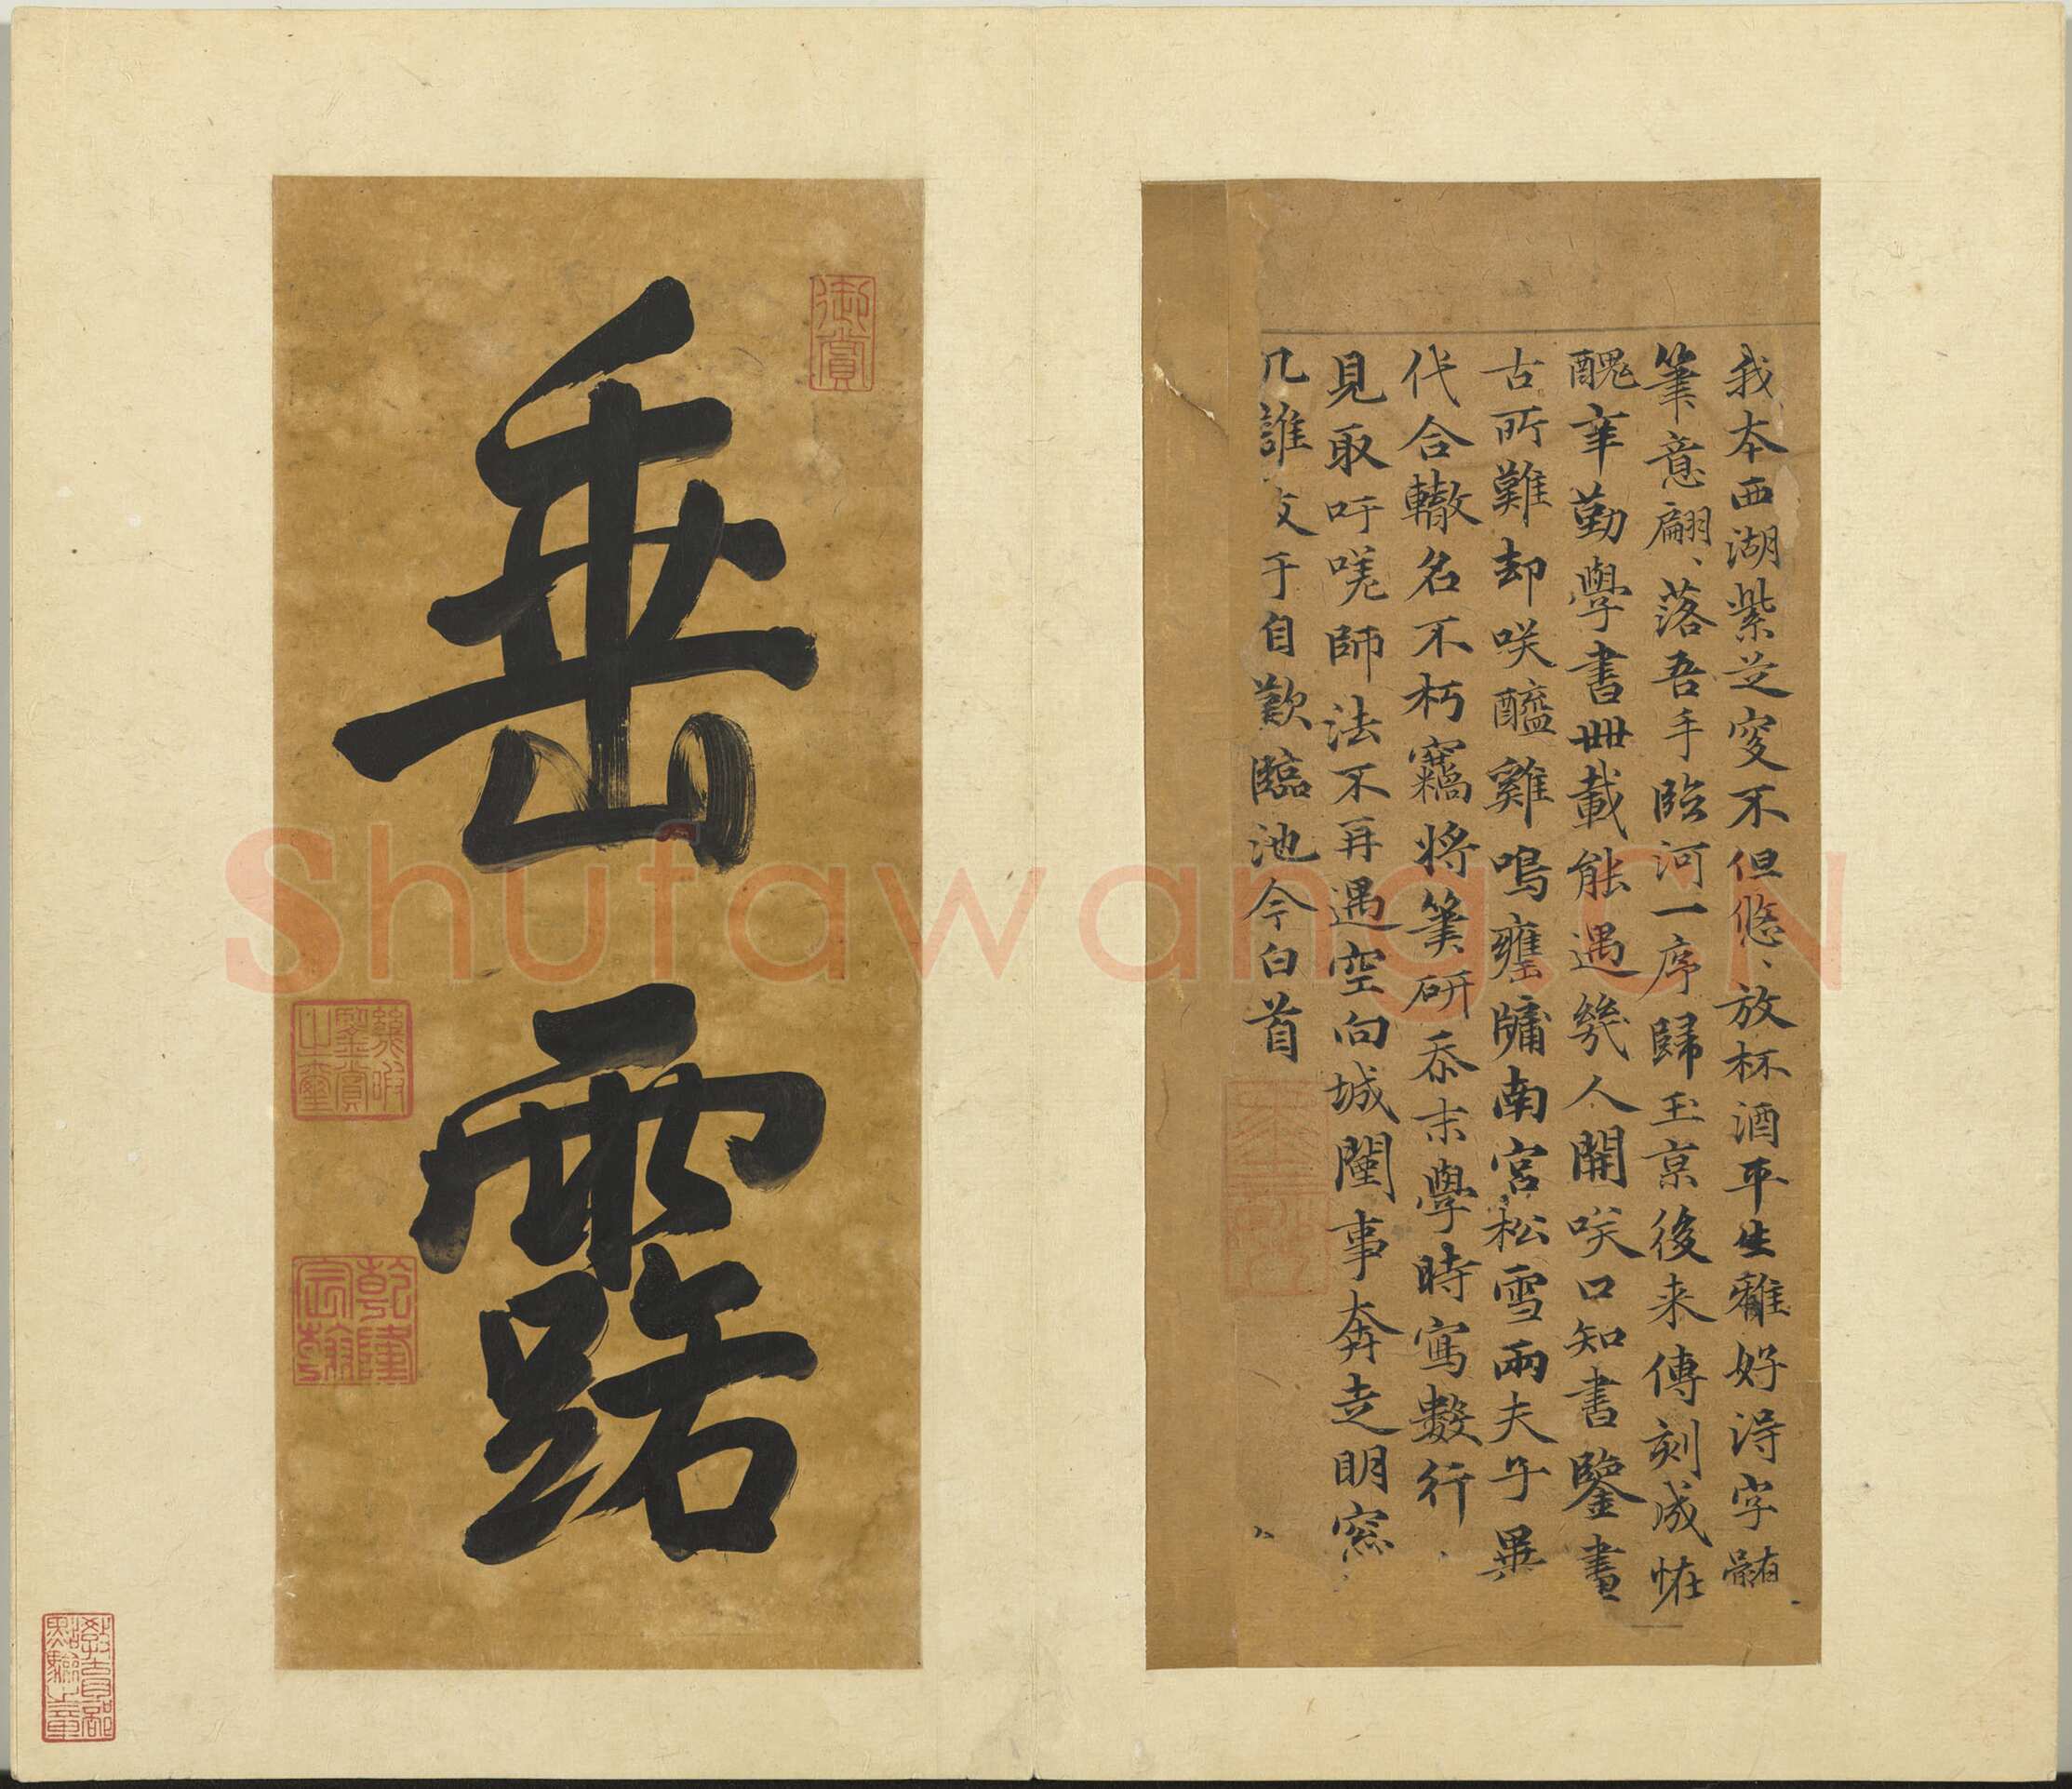 我本西湖紫芝叜不但悠、放杯酒平生雖好得字髓
筆意翩、落吾手臨河一序歸玉京後来傳刻成恠
醜辛勤學書卌載能遇幾人開咲口知書鑒書
古所難却咲醯雞鳴甕牖南宮松雪兩夫子異
代合轍名不朽竊將筆研忝末學時寫數行
見取吁嗟師法不再遇空向城闉事奔走明窓
几誰于自歎臨池今白首
御賞
垂露
幾暇鑒賞之璽
乾隆宸翰
教育部點驗之章
Shufawang.CN